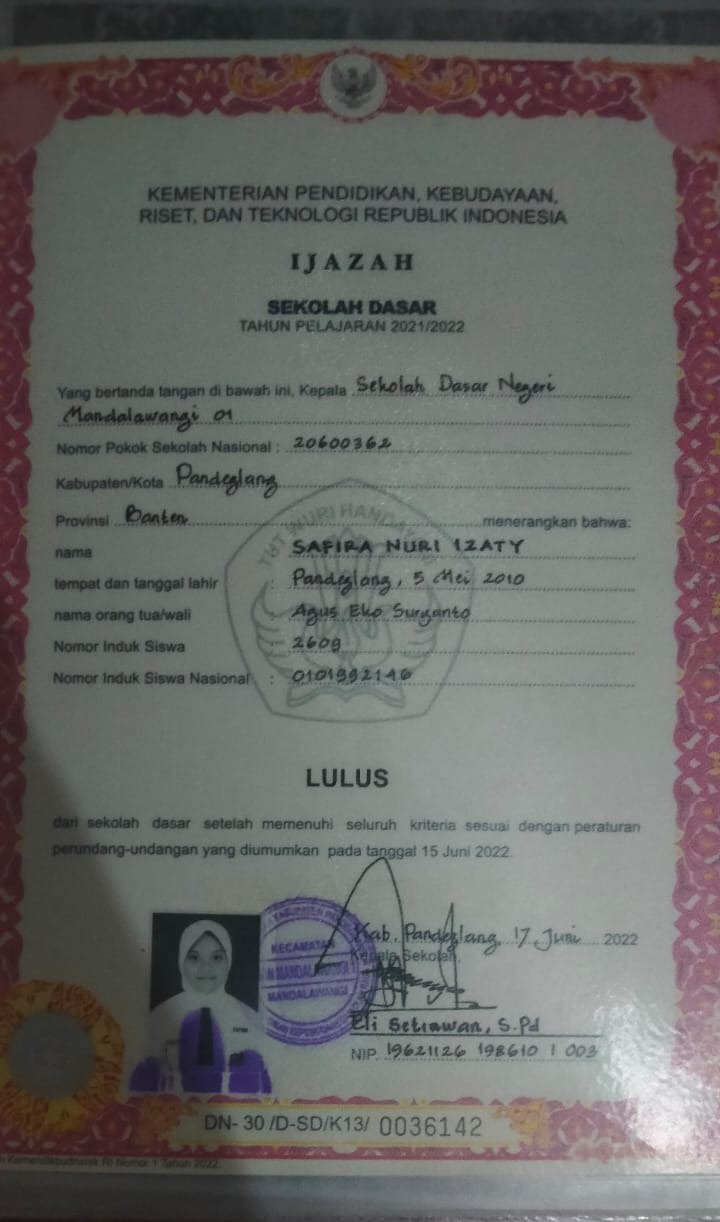 KEMENTERIAN PENDIDIKAN, KEBUDAYAAN,
RISET, DAN TEKNOLOGI REPUBLIK INDONESIA
IJAZAH
SEKOLAH DASAR
TAHUN PELAJARAN 2021/2022
Yang bertanda tangan di bawah ini, Kepala Sekolah Dasar Negeri
Mandalawangi 01
Nomor Pokok Sekolah Nasional : 20600362
Kabupaten/Kota Pandeglang
Provinsi Banten menerangkan bahwa:
TUT WURI HANDAYANI
nama : SAFIRA NURI IZATY
tempat dan tanggal lahir : Pandeglang, 5 Mei 2010
nama orang tua/wali : Agus Eko Suryanto
Nomor Induk Siswa : 2609
Nomor Induk Siswa Nasional : 0101992146
LULUS
dari sekolah dasar setelah memenuhi seluruh kriteria sesuai dengan peraturan
perundang-undangan yang diumumkan pada tanggal 15 Juni 2022.
KABUPATEN
KECAMATAN
MANDALAWANGI
Kab. Pandeglang, 17 Juni 2022
Kepala Sekolah,
Eli Setiawan, S.Pd
NIP. 19621126 198610 1 003
DN- 30 /D-SD/K13/ 0036142
Kemendikbudristek RI Nomor 1 Tahun 2022